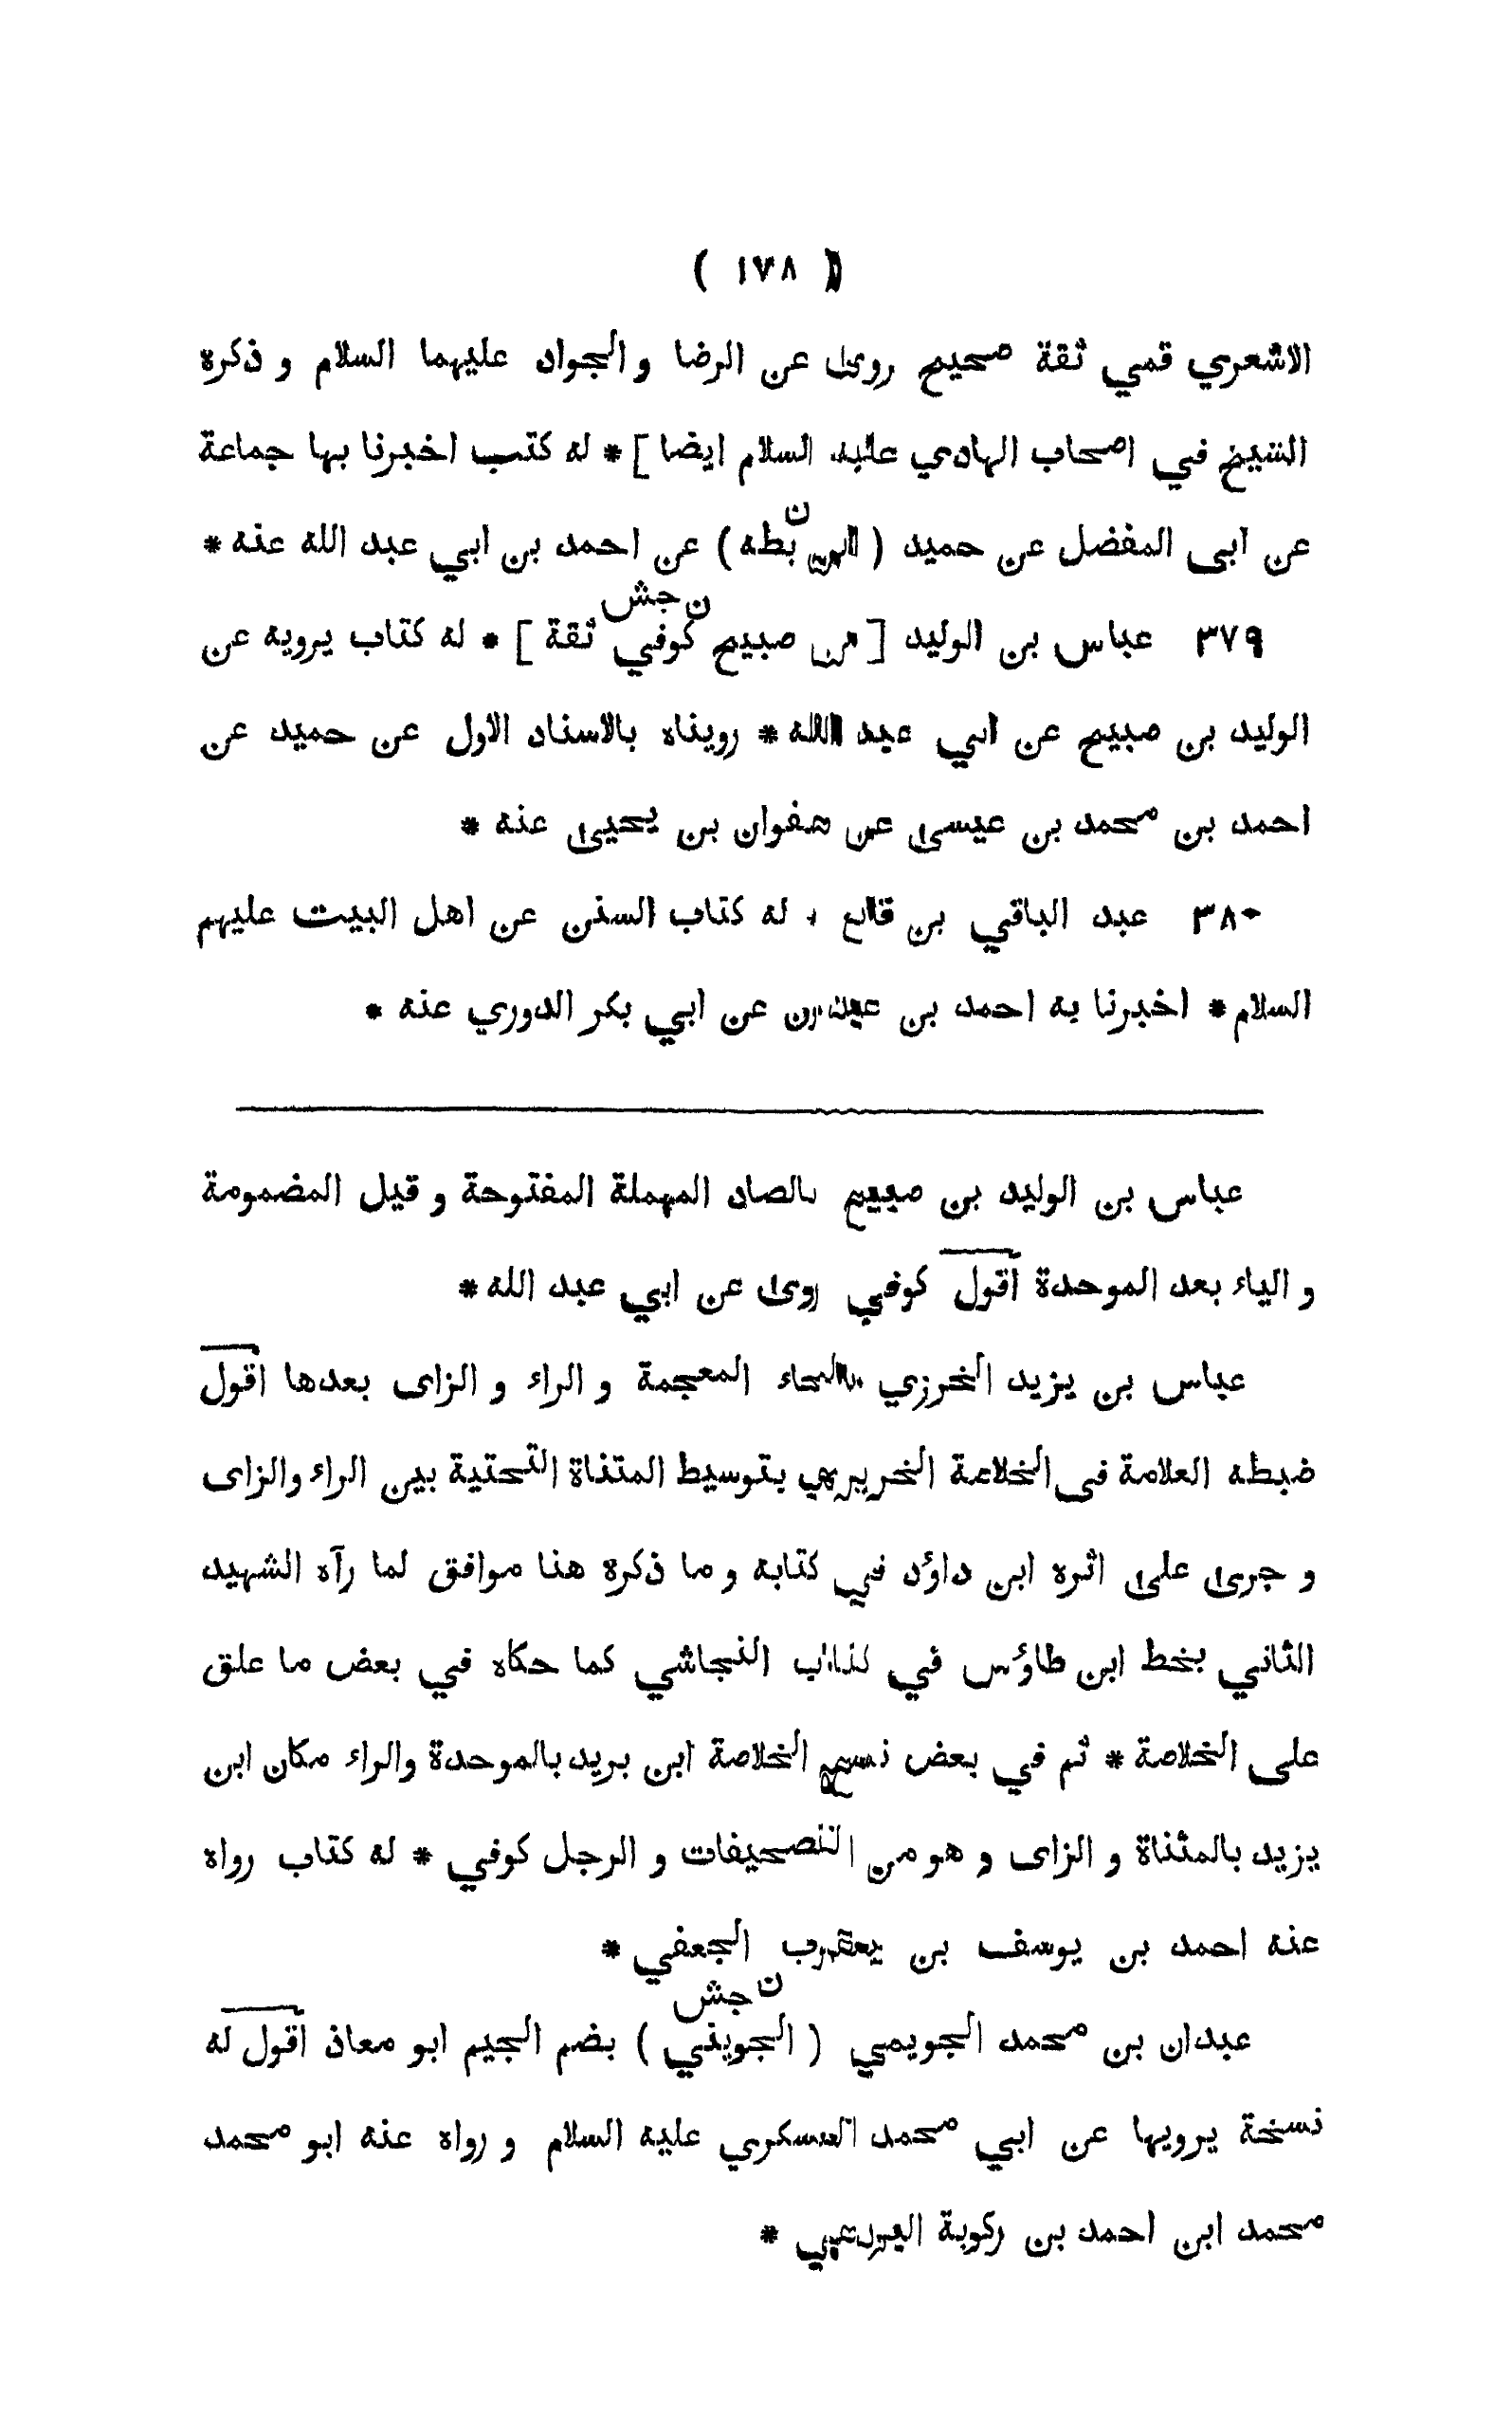 ( ١٧٨ )
الاشعري قمي ثقة صحيح روى عن الرضا و الجواد عليهما السلام و ذكره
الشيخ في اصحاب الهادي عليه السلام ايضا ] * له كتب اخبرنا بها جماعة
عن ابى المفضل عن حميد ( ابن بطه ) عن احمد بن ابي عبد الله عنه *
ن
٣٧٩ عباس بن الوليد [ بن صبيح كوفي ثقة ] * له كتاب يرويه عن
ن جش
الوليد بن صبيح عن ابي عبد الله * رويناه بالاسناد الاول عن حميد عن
احمد بن محمد بن عيسى عن صفوان بن يحيى عنه *
٣٨٠ عبد الباقي بن قانع ، له كتاب السنن عن اهل البيت عليهم
السلام * اخبرنا به احمد بن عبدون عن ابي بكر الدوري عنه *
عباس بن الوليد بن صبيح بالصاد المهملة المفتوحة و قيل المضمومة
و الياء بعد الموحدة اقول كوفي روى عن ابي عبد الله *
عباس بن يزيد الخرزي بالخاء المعجمة و الراء و الزاى بعدها اقول
ضبطه العلامة فى الخلاصة الخريزي بتوسيط المتناة التحتية بين الراء والزاى
و جرى على اثره ابن داؤد في كتابه و ما ذكره هنا موافق لما رآه الشهيد
الثاني بخط ابن طاؤس في كتاب النجاشي كما حكاه في بعض ما علق
على الخلاصة * ثم في بعض نسخ الخلاصة ابن بريد بالموحدة والراء مكان ابن
يزيد بالمثناة و الزاى و هو من التصحيفات و الرجل كوفي * له كتاب رواه
عنه احمد بن يوسف بن يعقوب الجعفي *
ن جش
عبدان بن محمد الجويمي ( الجويني ) بضم الجيم ابو معاذ اقول له
نسخة يرويها عن ابي محمد العسكري عليه السلام و رواه عنه ابو محمد
محمد ابن احمد بن ركوبة *